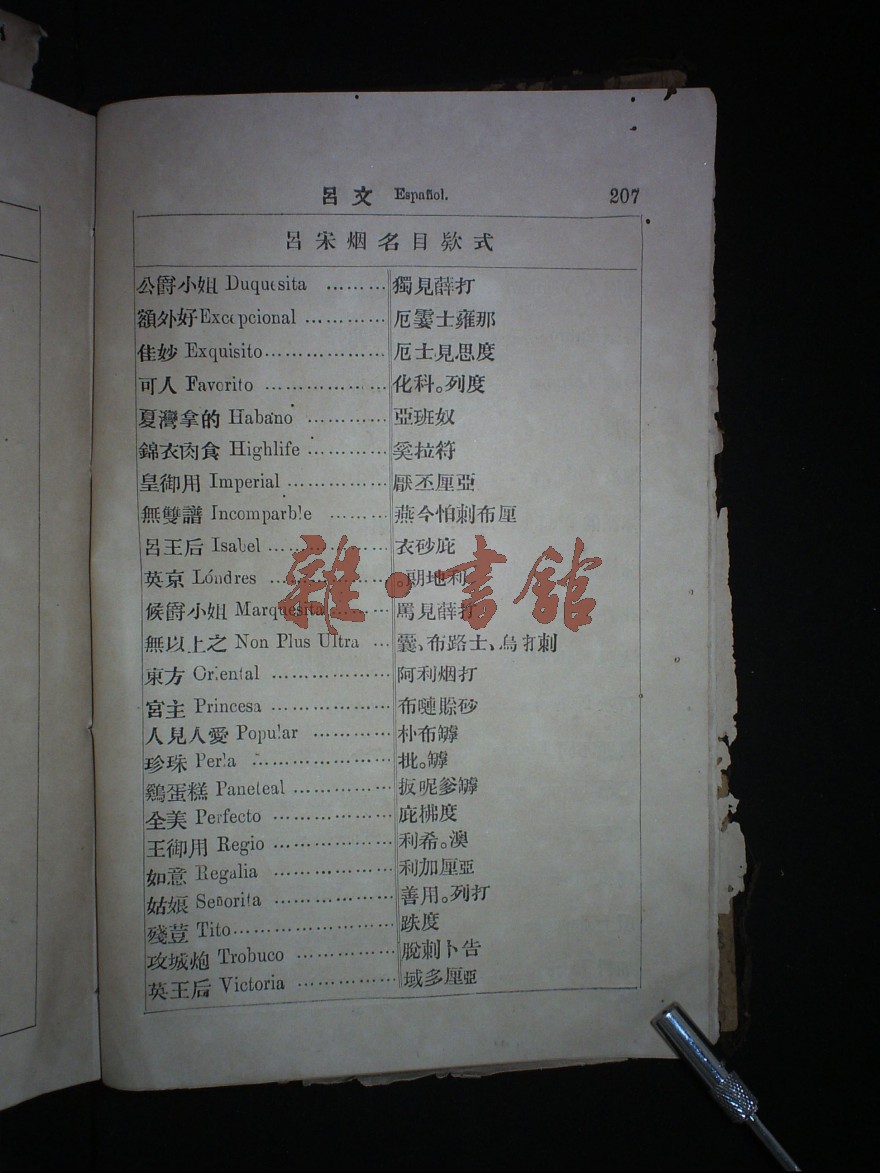 呂文 Español. 207
呂宋烟名目欵式
公爵小姐 Duquesita ……… 獨見薛打
額外好 Excepcional ………… 厄霎士雍那
佳妙 Exquisito……………… 厄士見思度
可人 Favorito ……………… 化科。列度
夏灣拿的 Habano ………… 亞班奴
錦衣肉食 Highlife ………… 奚拉符
皇御用 Imperial …………… 厭丕厘亞
無雙譜 Incomparble ……… 燕今怕刺布厘
呂王后 Isabel ……………… 衣砂庇
英京 Lóndres ……………… 。朗地利
候爵小姐 Marquesita ……… 罵見薛打
無以上之 Non Plus Ultra … 囊、布路士、烏打刺
東方 Oriental ……………… 阿利烟打
宮主 Princesa ……………… 布嗹賒砂
人見人愛 Popular ………… 朴布罅
珍珠 Perla ………………… 批。罅
鷄蛋糕 Paneteal …………… 扳呢爹罅
全美 Perfecto ……………… 庇拂度
王御用 Regio ……………… 利希。澳
如意 Regalia ……………… 利加厘亞
姑娘 Señorita ……………… 善用。列打
殘荳 Tito…………………… 跌度
攻城炮 Trobuco …………… 脫刺卜告
英王后 Victoria …………… 域多厘亞
雜·書館